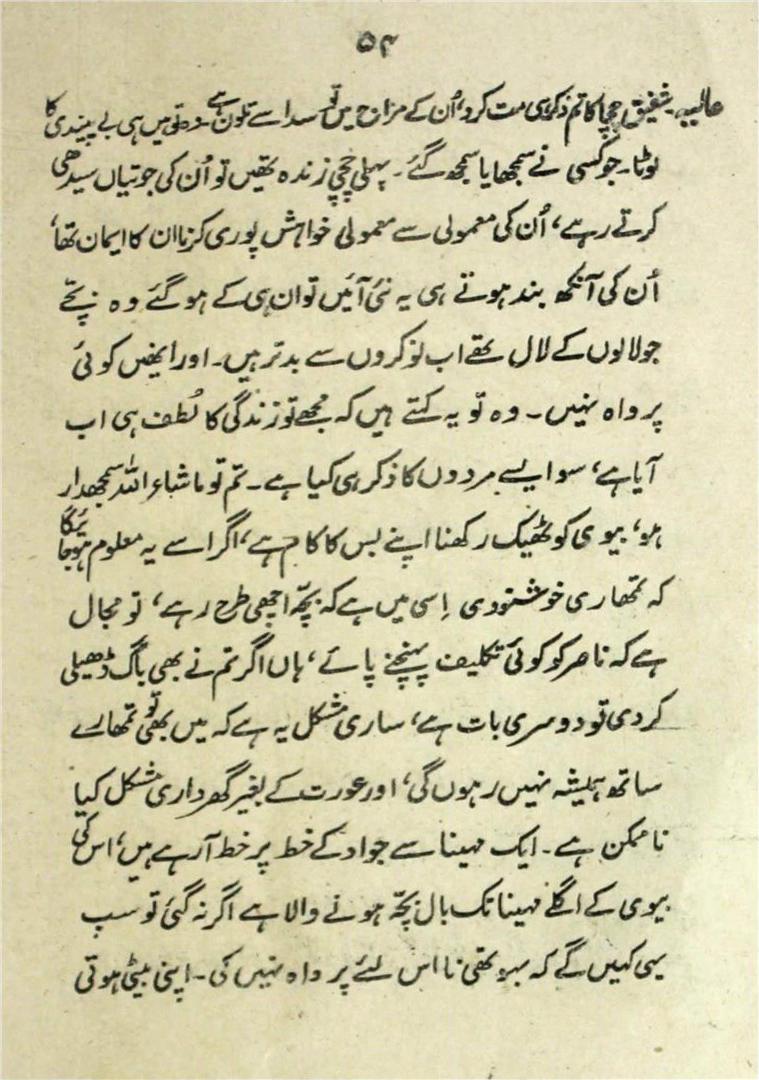 ۵۴
عالیہ۔ شفیق چچا کا تم ذکر ہی مت کرو، اُن کے مزاج میں تو سدا سے تلون ہے۔ وہ تو ہیں ہی بے پیندی کا
لوٹا۔ جو کسی نے سمجھایا سمجھ گئے۔ پہلی چچی زندہ تھیں تو اُن کی جوتیاں سیدھی
کرتے رہے، اُن کی معمولی سے معمولی خواہش پوری کرنا ان کا ایمان تھا،
اُن کی آنکھ بند ہوتے ہی یہ نئی آئیں تو ان ہی کے ہو گئے وہ بچّے
جو لالوں کے لال تھے اب نوکروں سے بدتر ہیں۔ اور انھیں کوئی
پرواہ نہیں۔ وہ تو یہ کہتے ہیں کہ مجھے تو زندگی کا لُطف ہی اب
آیا ہے، سو ایسے مردوں کا ذکر ہی کیا ہے۔ تم تو ماشاء اللہ سمجھدار
ہو، بیوی کو ٹھیک رکھنا اپنے بس کا کام ہے، اگر اسے یہ معلوم ہو جائیگا
کہ تمھاری خوشنودی اِسی میں ہے کہ بچّہ اچھی طرح رہے، تو مجال
ہے کہ ناصر کو کوئی تکلیف پہنچنے پائے، ہاں اگر تم نے بھی باگ ڈھیلی
کر دی تو دوسری بات ہے، ساری مشکل یہ ہے کہ میں بھی تو تمھارے
ساتھ ہمیشہ نہیں رہوں گی، اور عورت کے بغیر گھرداری مشکل کیا
ناممکن ہے۔ ایک مہینا سے جواد کے خط پر خط آ رہے ہیں، اس کی
بیوی کے اگلے مہینا تک بال بچّہ ہونے والا ہے اگر نہ گئی تو سب
یہی کہیں گے کہ بہو تھی نا اس لئے پرواہ نہیں کی۔ اپنی بیٹی ہوتی